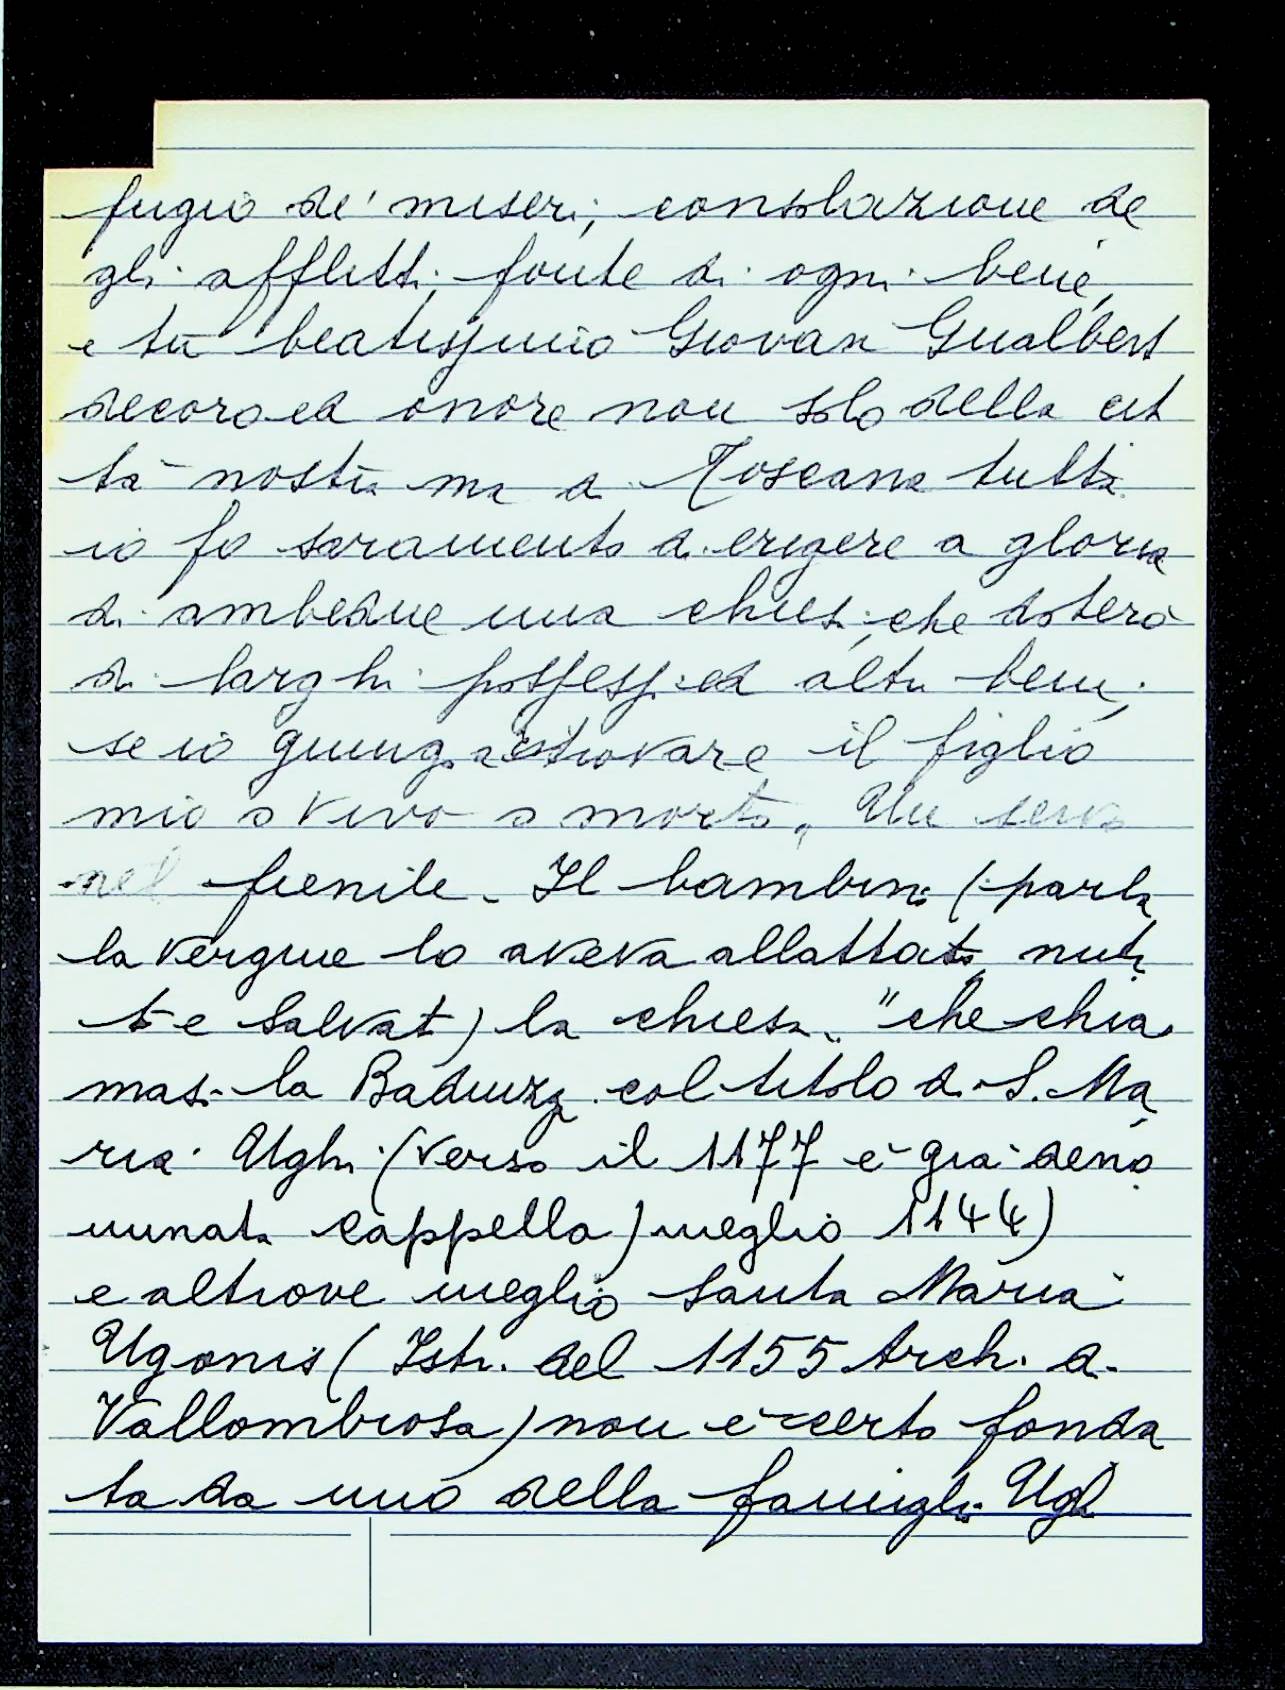 fugio de' miseri, consolazione de
gli afflitti, fonte di ogni bene,
e tu beatissimo Giovan Gualbert
decoro ed onore non solo della cit
tà nostra ma di Toscana tutta
io fo saramento di erigere a gloria
di ambedue una chiesa, che doterò
di larghi possessi ed altri beni,
se io giungo a ritrovare il figlio
mio o vivo o morto. Un servo
nel fienile. Il bambino (parla
la vergine lo aveva allattato, nutri
to e salvato) la chiesa. "che chia
masi la Badiuzza col titolo di S. Ma
ria Ughi (verso il 1177 è già deno
minata cappella) meglio 1144)
e altrove meglio Santa Maria
Ugonis (Istr. del 1155 Arch. di
Vallombrosa) non è certo fonda
ta da uno della famiglia Ughi